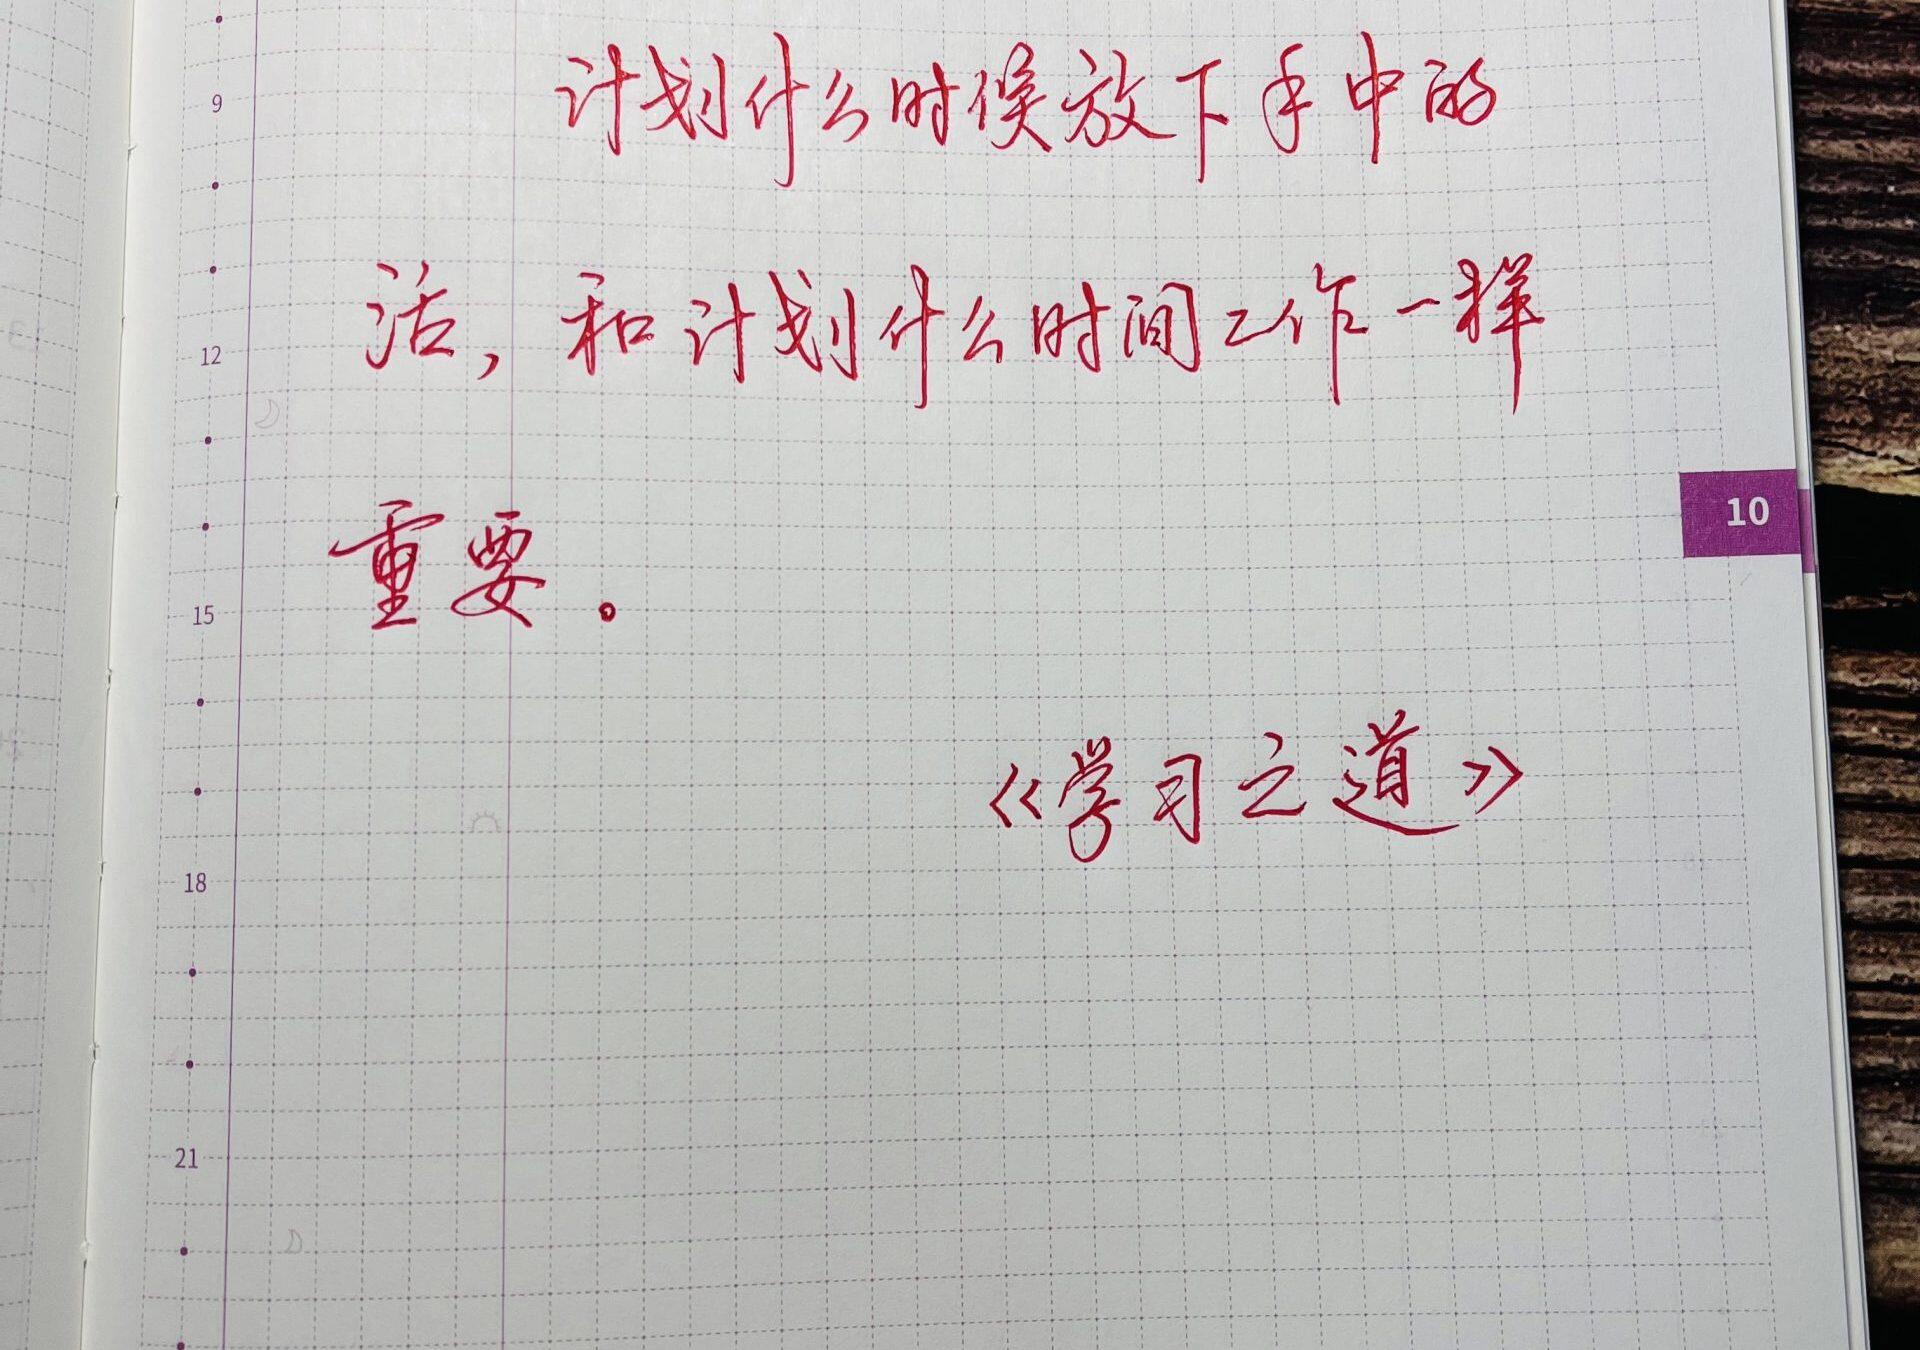 计划什么时候放下手中的
活，和计划什么时间工作一样
重要。
《学习之道》
9
12
15
18
21
10